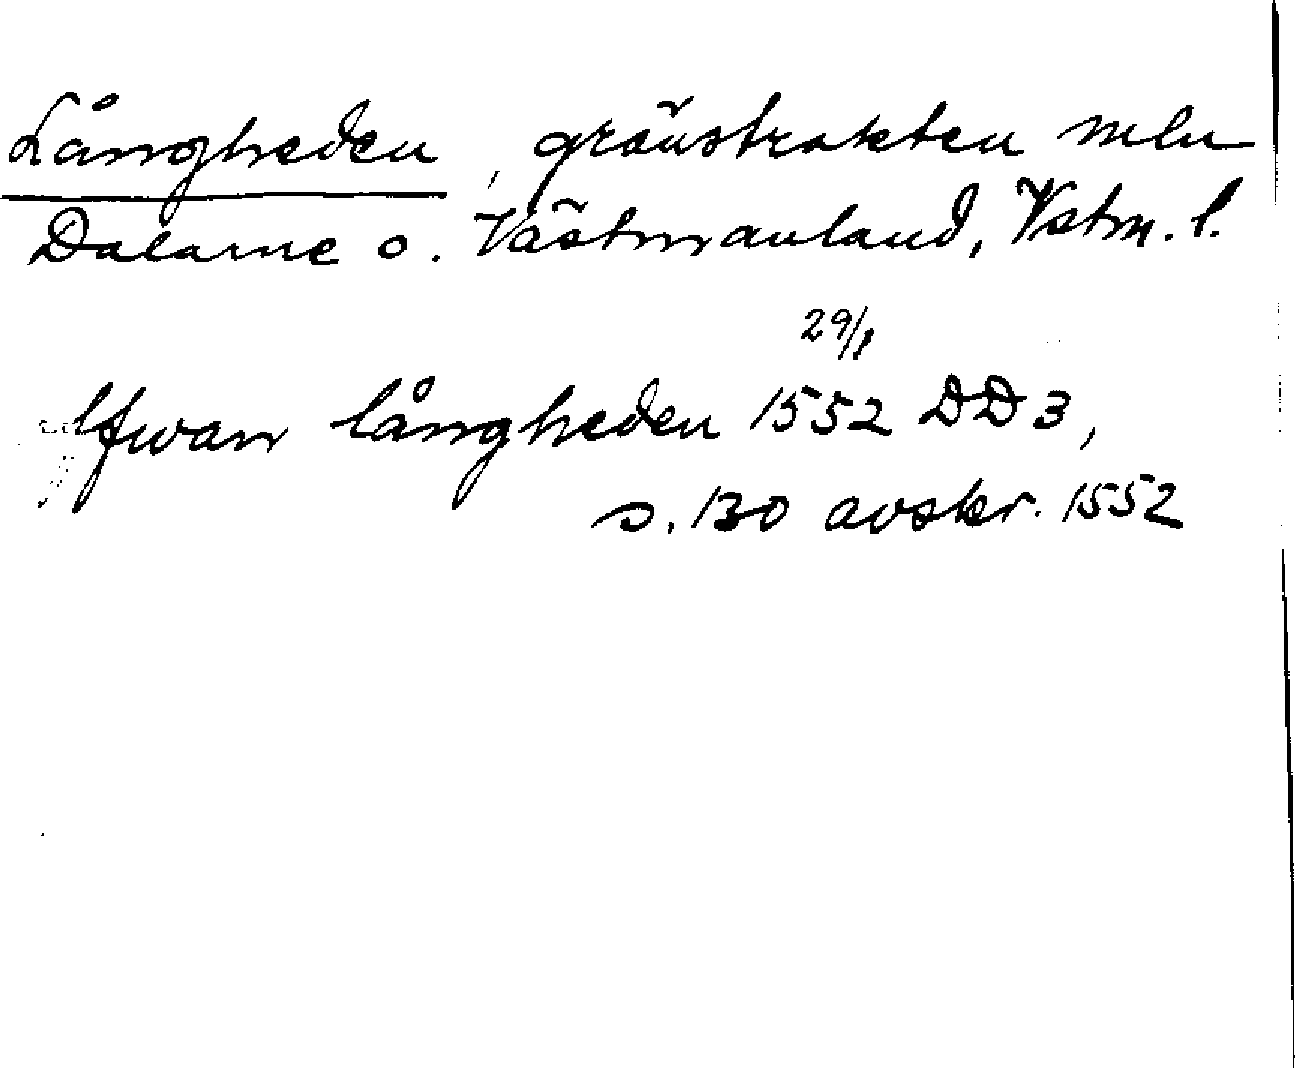 Långheden, gränstrakten mln
Dalarne o. Västmanland, Vstm. l.
29/1
Ofwan långheden 1552 DD 3,
s. 130 avskr. 1552